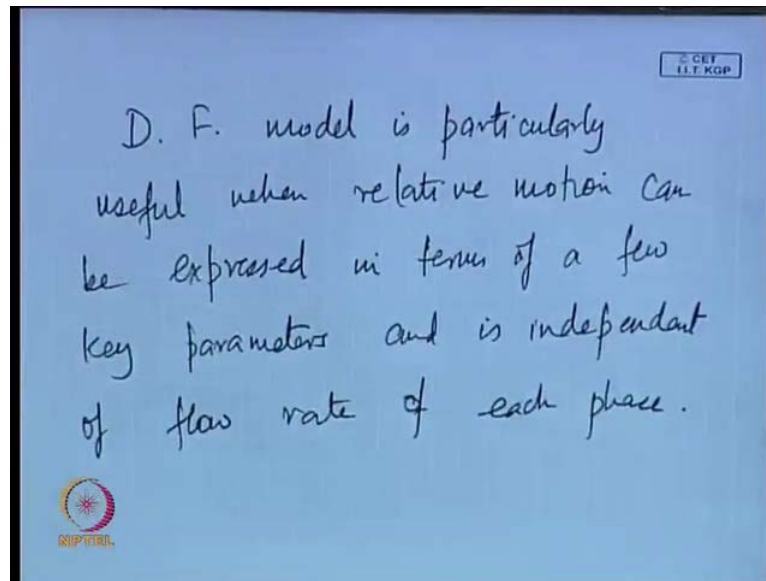 © CET
I.I.T. KGP
D. F. model is particularly
useful when relative motion can
be expressed in terms of a few
key parameters and is independant
of flow rate of each phase.
NPTEL